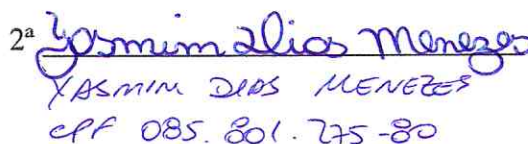 2ª Yasmim Dias Menezes
YASMIN DIAS MENEZES
CPF 085.801.275-80